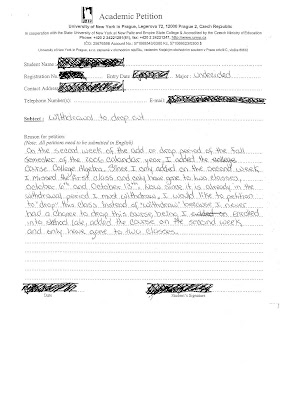 Academic Petition
University of New York in Prague, Legerova 72, 12000 Prague 2, Czech Republic
In cooperation with the State University of New York at New Paltz and Empire State College & Accredited by the Czech Ministry of Education
Student Name:
Registration No.  Entry Date  Major: Undecided
Contact Address:
Telephone Number(s):  E-mail:
Subject: withdrawal to drop out
Reason for petition:
(Note: All petitions need to be submitted in English)
On the second week of the add or drop period of the Fall
Semester of the 2006 calendar year, I added the
course College Algebra. Since I only added on the second week,
I missed the first class and only have gone to two classes,
October 6th and October 13th. Now since it is already in the
withdrawal period I must withdraw, I would like to petition
to "drop" this class instead of "withdraw" because I never
had a chance to drop this course being I enrolled
into school late, added the course on the second week
and only have gone to two classes.
Date  Student's Signature